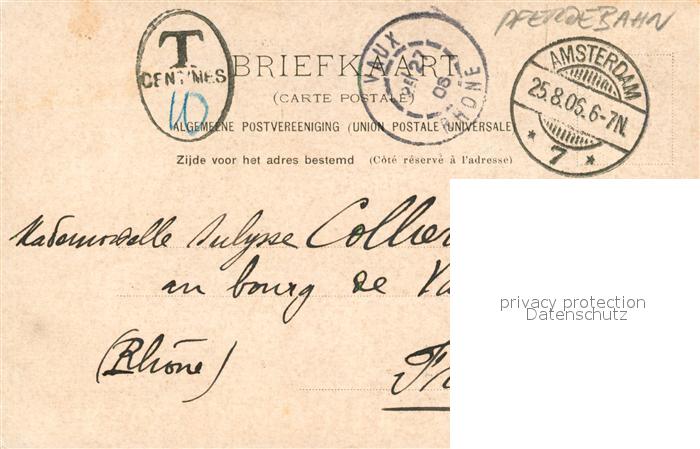 PFERDEBAHN
T
CENTIMES
10
BRIEFKAART
(CARTE POSTALE)
ALGEMEENE POSTVEREENIGING (UNION POSTALE UNIVERSELLE
Zijde voor het adres bestemd (Côté réservé à l'adresse)
VAUX
27
06
RHÔNE
AMSTERDAM
25.8.06.6-7N.
* 7 *
Mademoiselle Collier
au bourg de Va
(Rhône)
Fr
privacy protection
Datenschutz